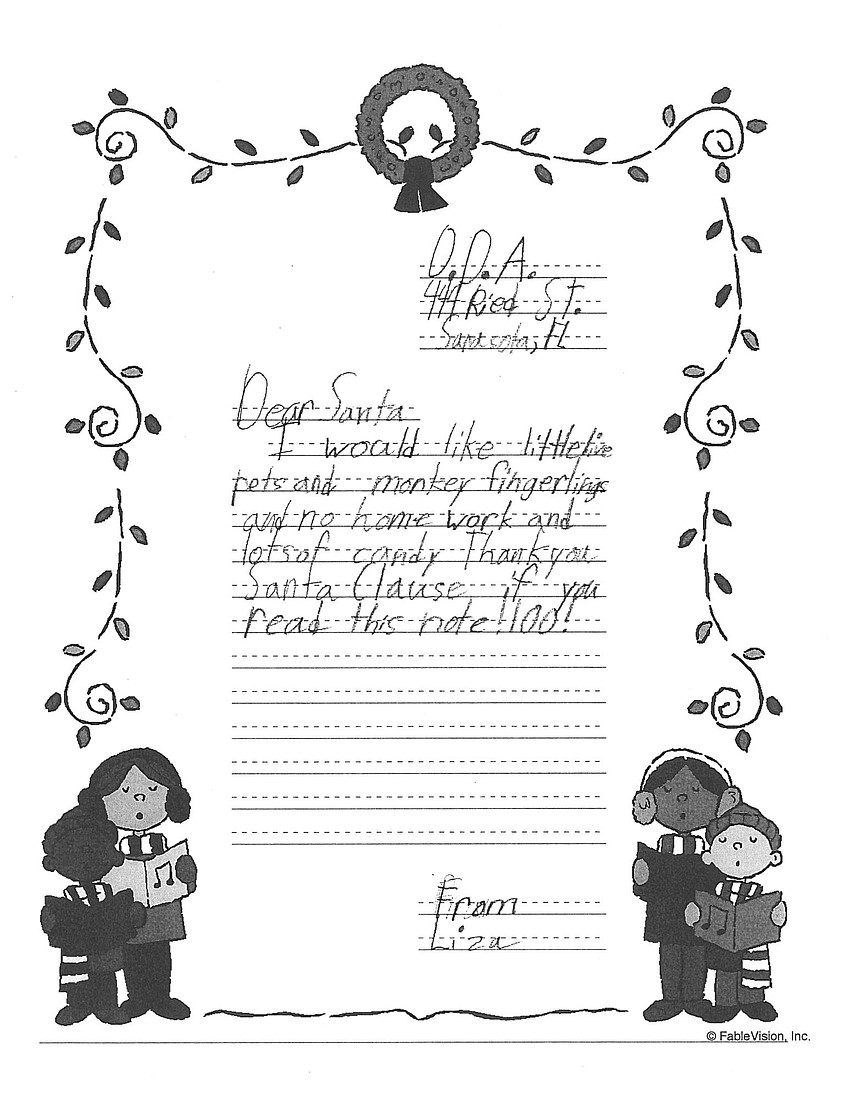 O.D.A.
444 Ried St.
Sarasota, FL
Dear Santa
I would like little live
pets and monkey fingerlings
and no home work and
lots of candy Thank you
Santa Clause if you
read this note! 100!
From
Liza
© FableVision, Inc.